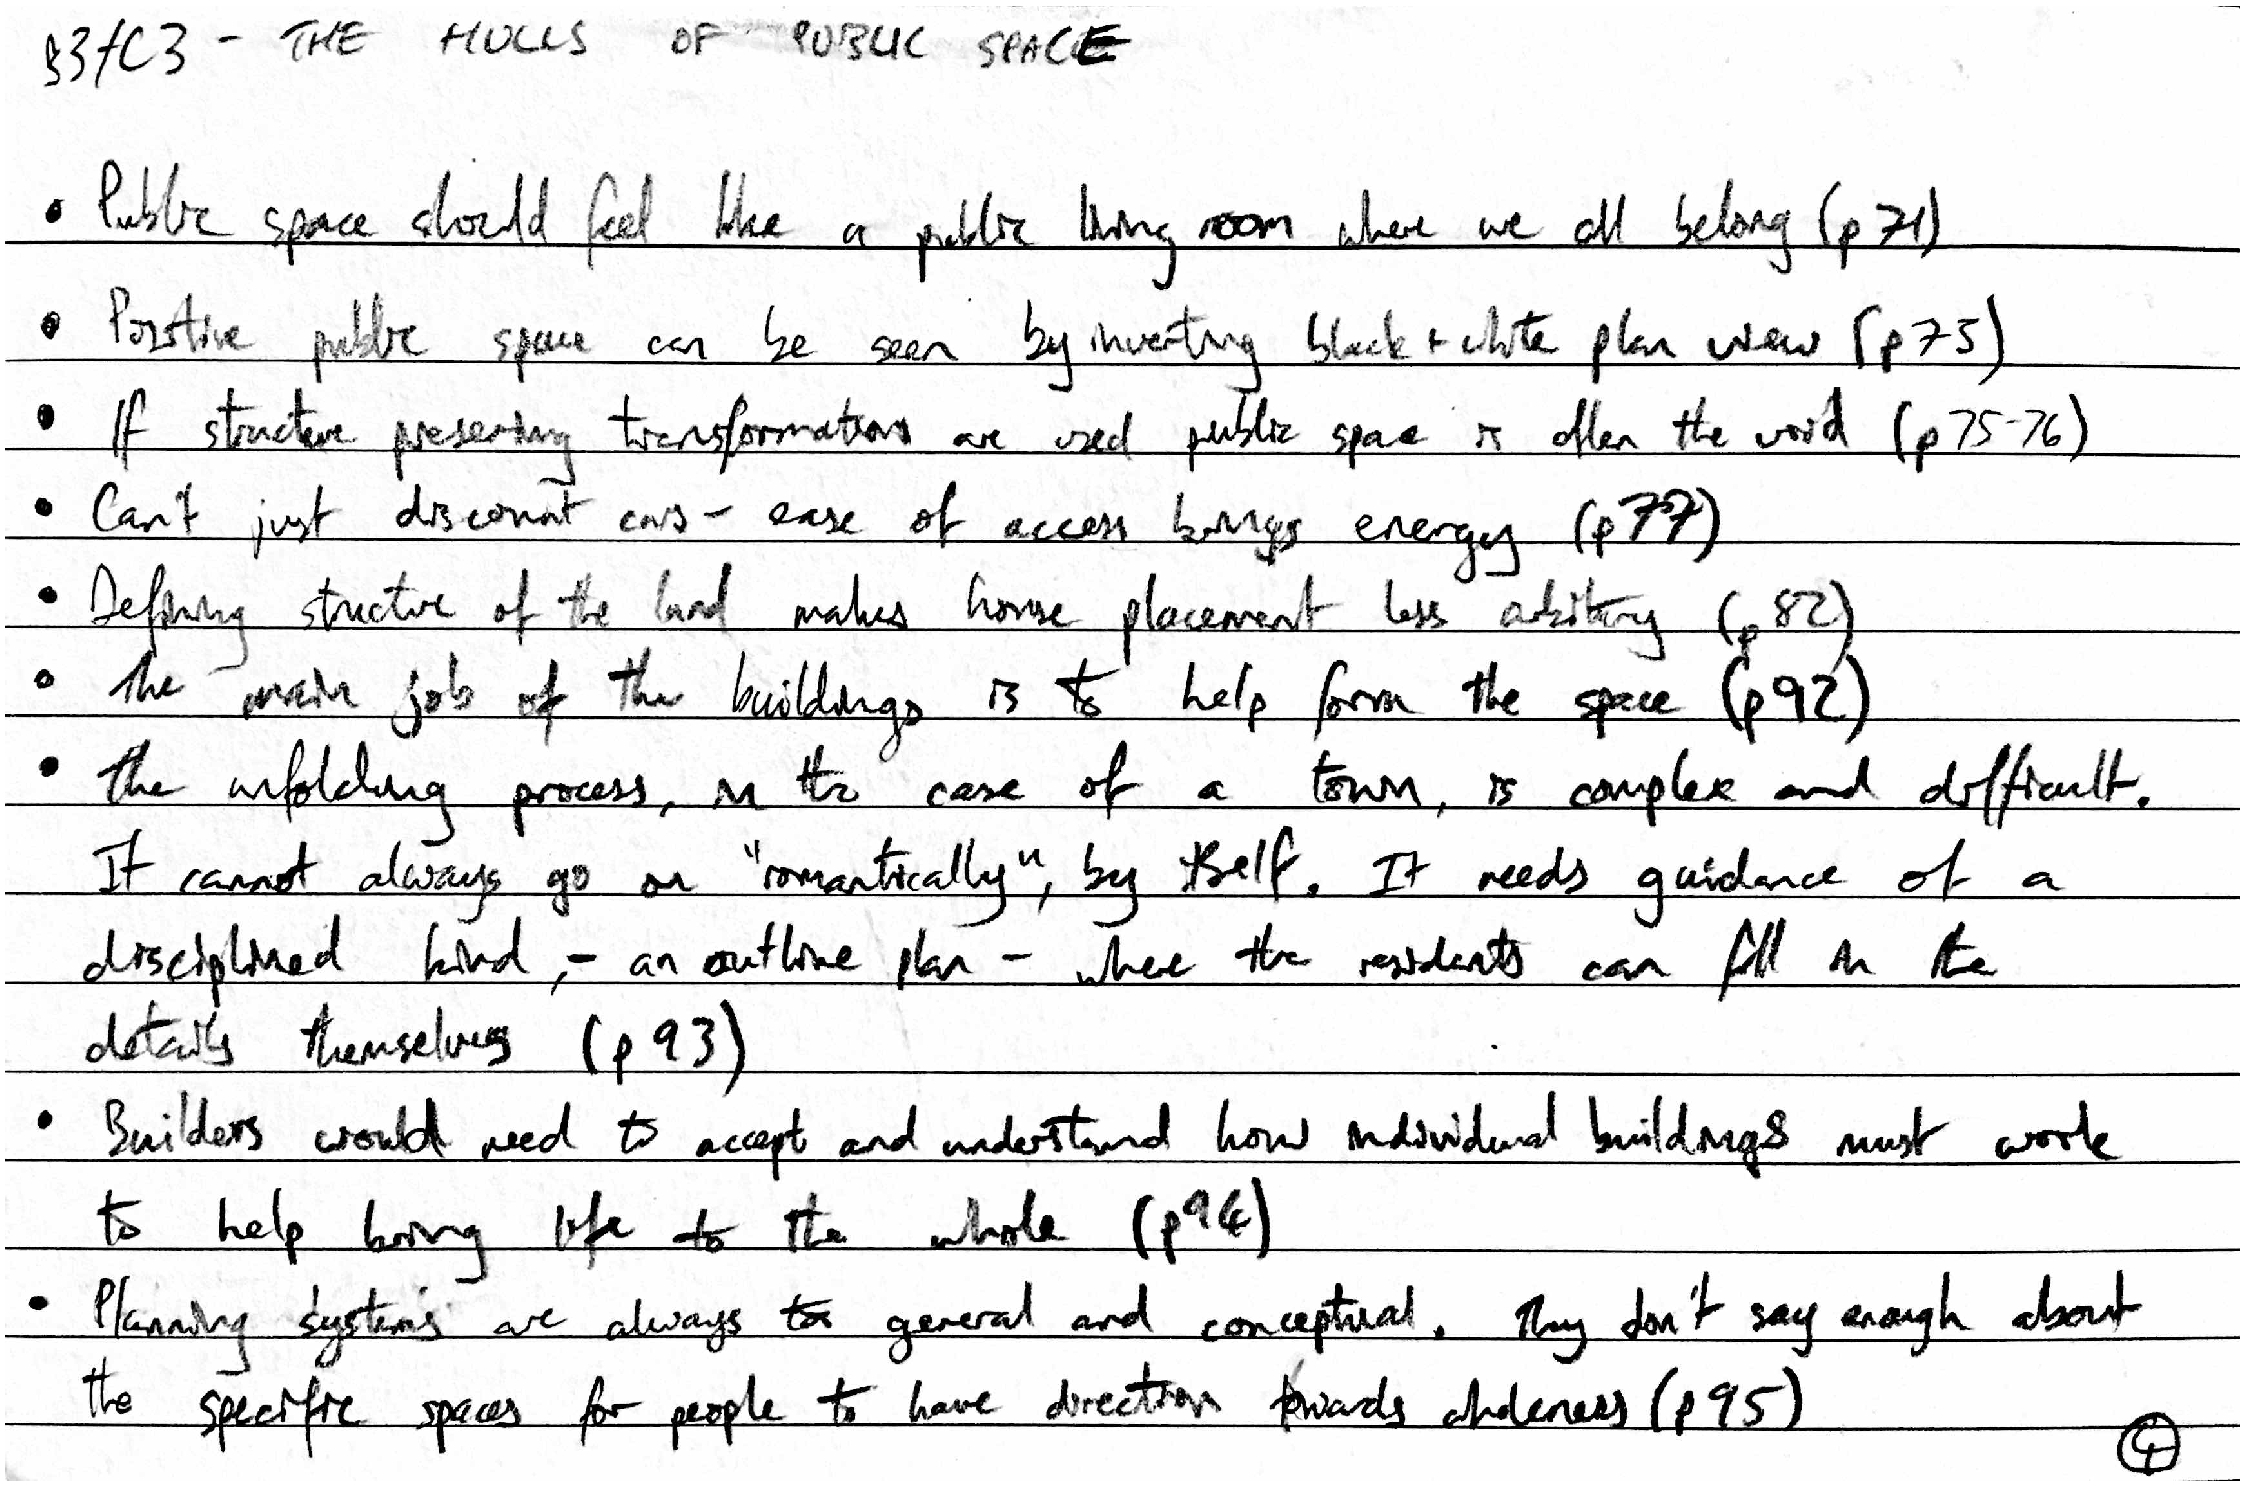 B3/C3 - THE HULLS OF PUBLIC SPACE
• Public space should feel like a public living room where we all belong (p71)
• Positive public space can be seen by inverting black + white plan view (p75)
• If structure preserving transformations are used public space is often the void (p75-76)
• Can't just discount cars - ease of access brings energy (p77)
• Defining structure of the land makes house placement less arbitrary (p82)
• The main job of the buildings is to help form the space (p92)
• The unfolding process, in the case of a town, is complex and difficult.
It cannot always go on "romantically", by itself. It needs guidance of a
disciplined kind, - an outline plan - where the residents can fill in the
details themselves (p93)
• Builders would need to accept and understand how individual buildings must work
to help bring life to the whole (p94)
• Planning systems are always too general and conceptual. They don't say enough about
the specific spaces for people to have direction towards wholeness (p95)
4